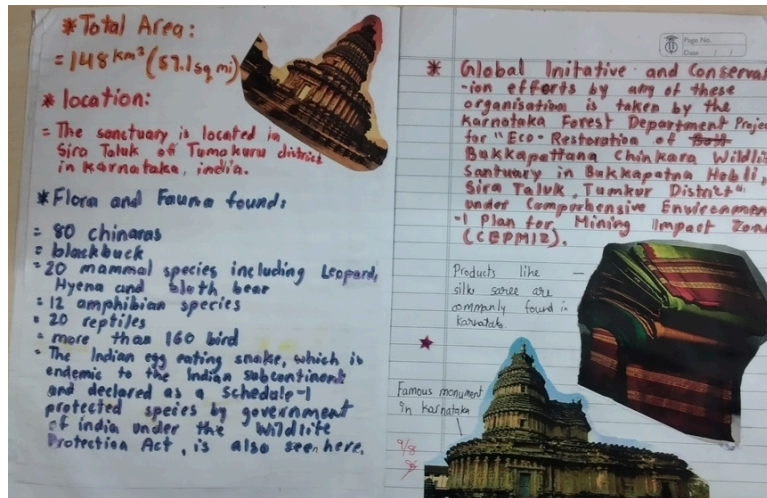 * Total Area:
= 148 km² (57.1 sq mi)
* location:
= The sanctuary is located in
Sira Taluk of Tumakuru district
in Karnataka, india.
* Flora and Fauna found:
= 80 chinaras
= blackbuck
= 20 mammal species including Leopard,
Hyena and sloth bear
= 12 amphibian species
= 20 reptiles
= more than 160 bird
= The Indian egg eating snake, which is
endemic to the Indian subcontinent
and declared as a schedule-1
protected species by government
of india under the Wildlife
Protection Act, is also seen here.
Page No.
Date / /
* Global Initative and Conservat
-ion efforts by any of these
organisation is taken by the
Karnotaka Forest Department Projec
for "Eco-Restoration of
Bukkapattana Chinkara Wildli
Santuary in Bukkapatna Hobli,
Sira Taluk, Tumkur District"
under Comporhensive Environmen
-l Plan for Mining Impact Zone
(CEPMIZ).
Products like —
silk saree are
commonly found in
Karnataka.
Famous monument
in karnataka
9/8